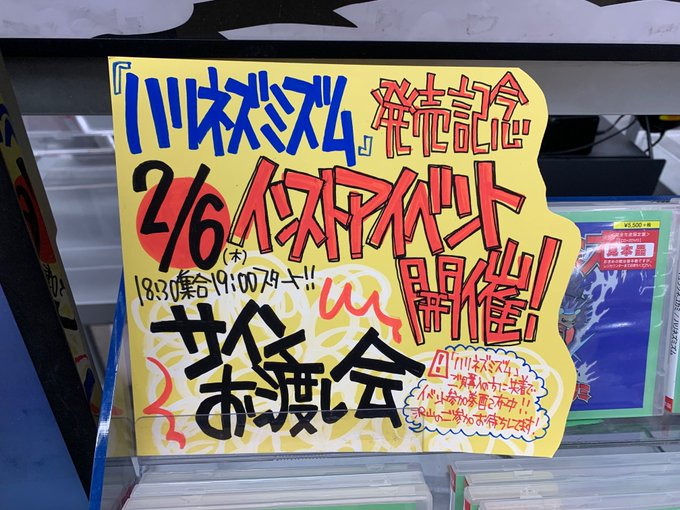 『ハリネズミズム』発売記念
2/6(木)
インストアイベント
開催!
18:30集合19:00スタート!!
サイン
お渡し会
『ハリネズミズム』
ご購入の方に先着で
イベント参加券配布中!!
沢山のご参加お待ちしてます!
¥5,500+税
見本盤